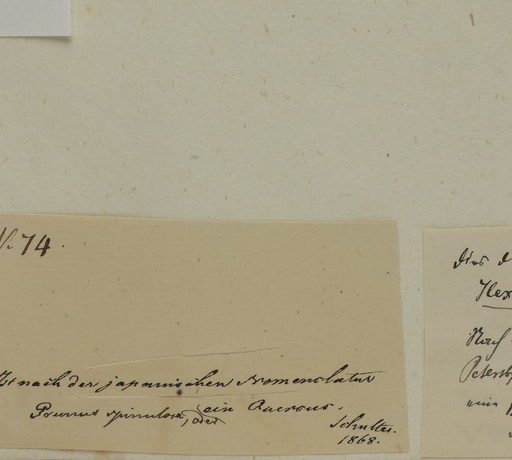 74.
Ist nach der japanischen Nomenclatur
Prunus spinulosa, oder ein Quercus.
Schultes.
1868.
Dies
Ilex
Nach
Petersb